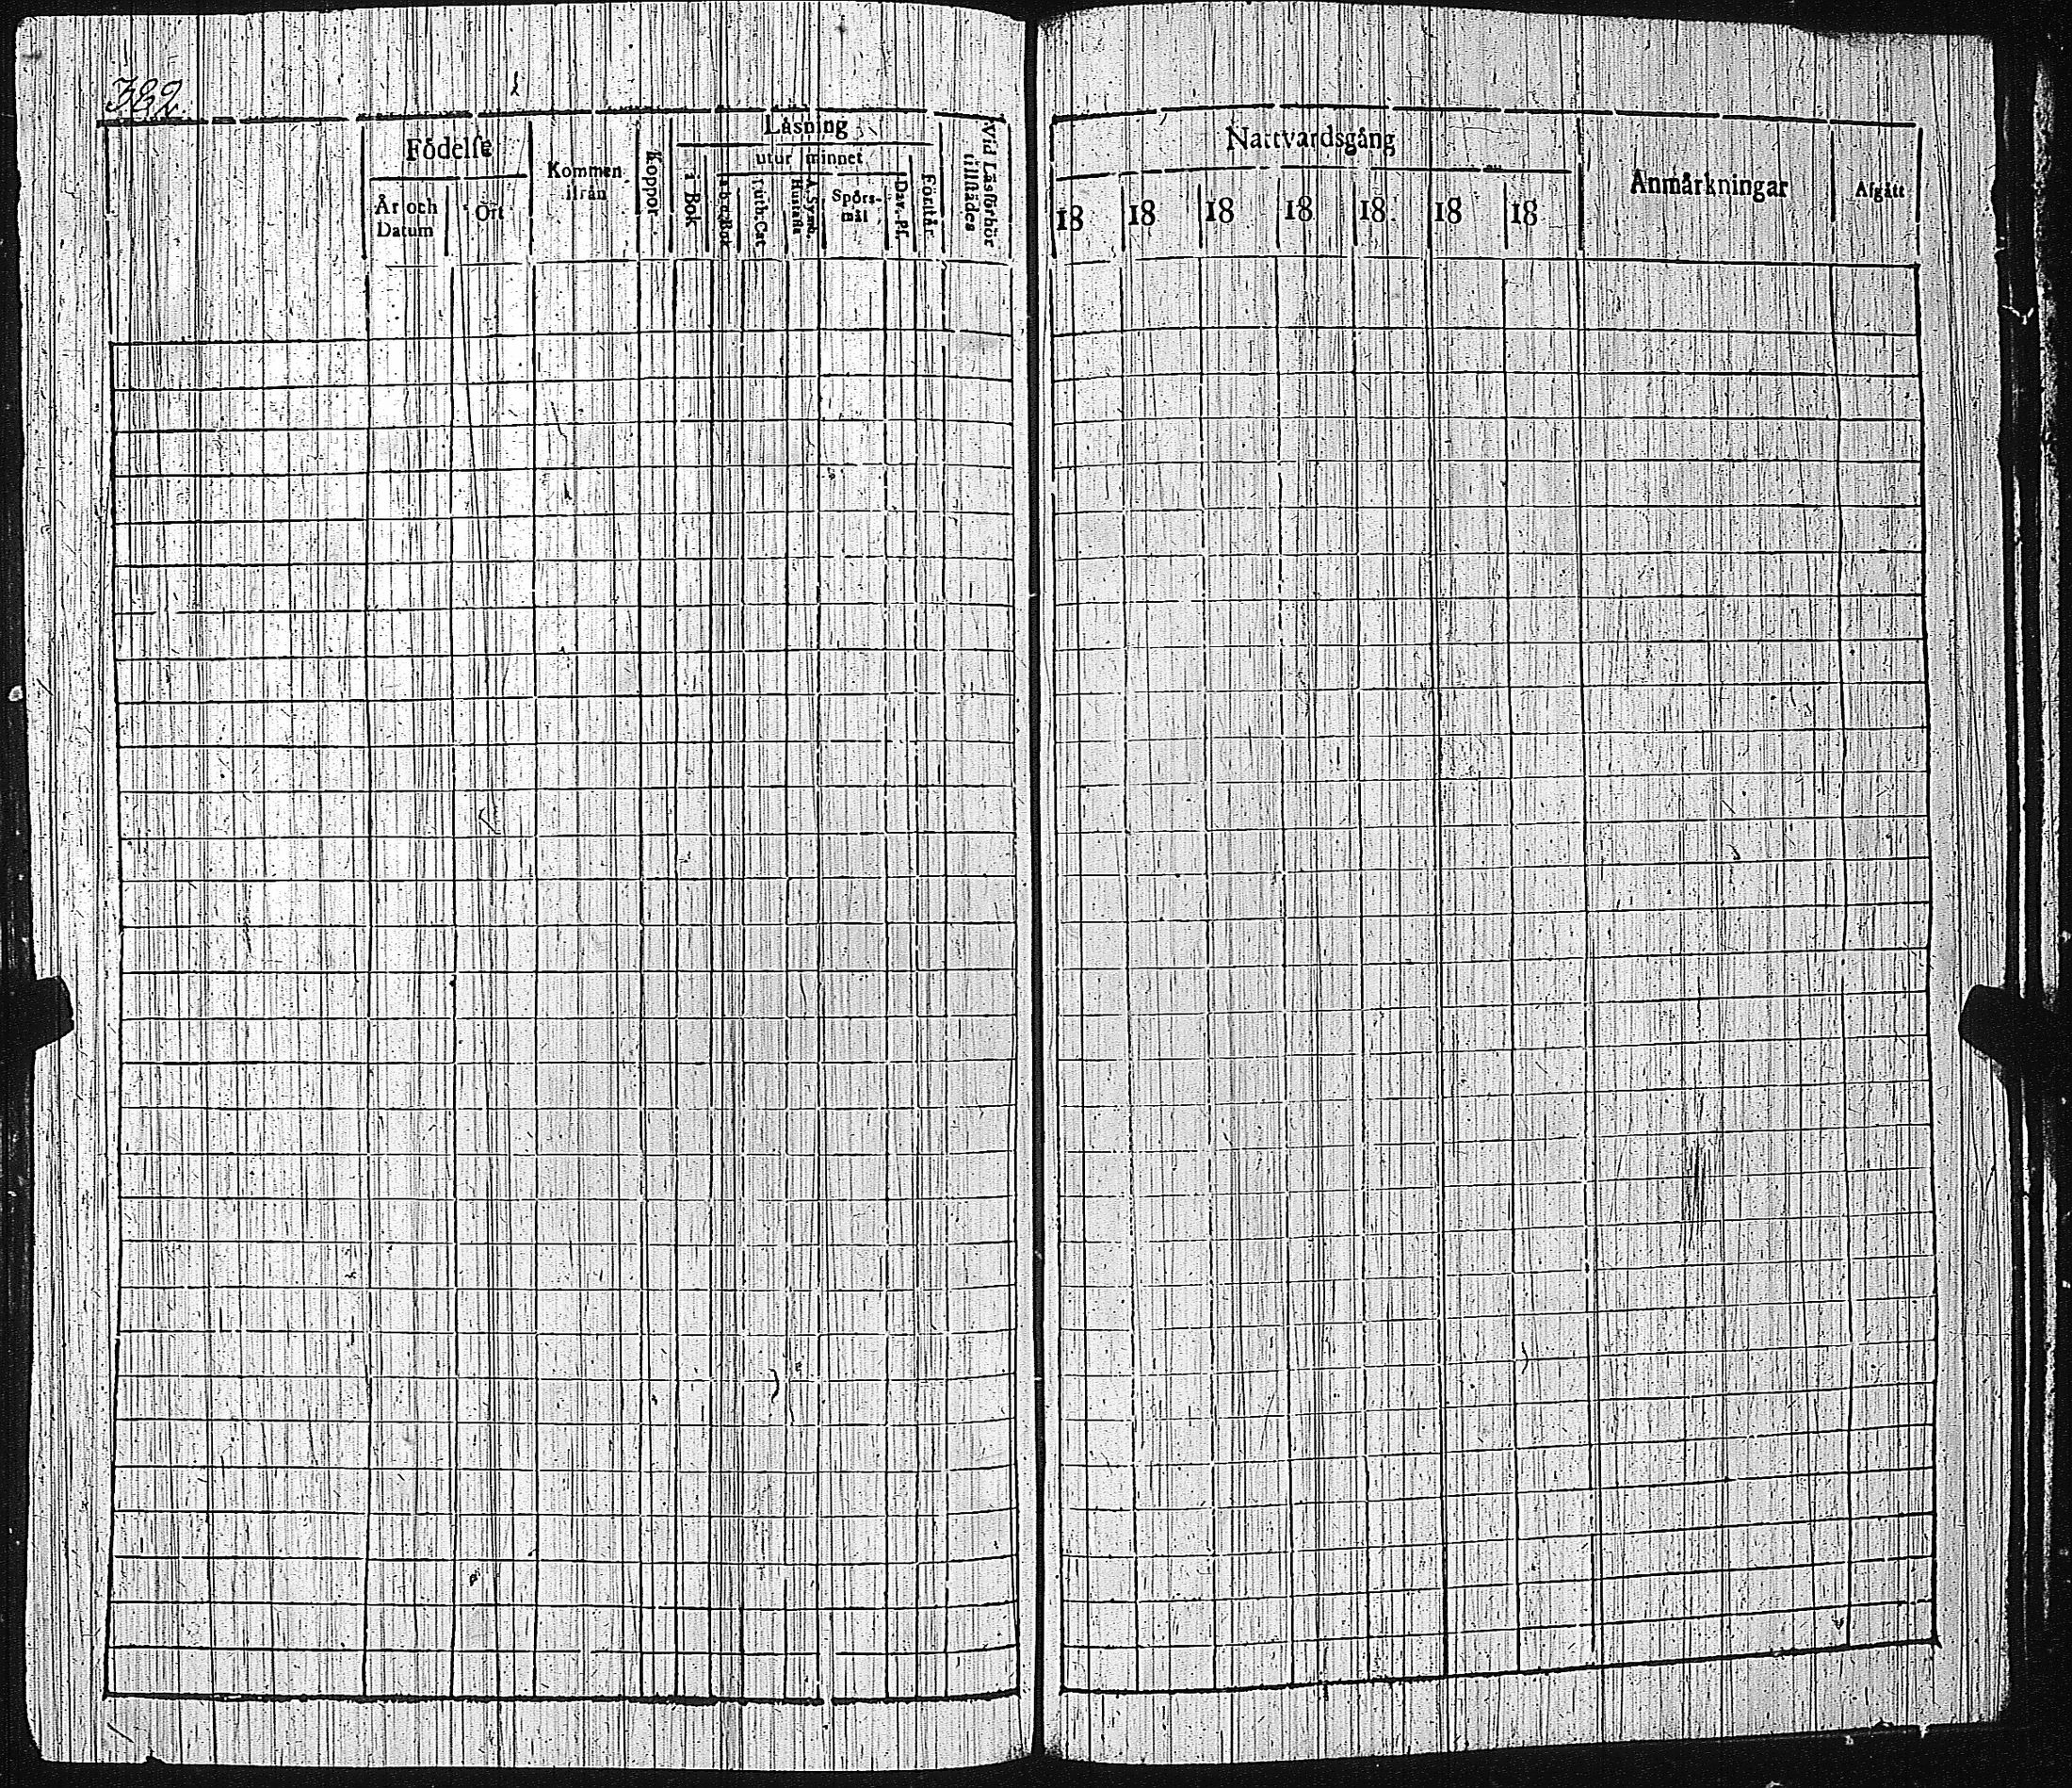 382
Födelse
År och Datum
Ort
Kommen ifrån
Koppor
Läsning
i Bok
utur minnet
a b c Bok
Luth. Cat.
A. Symb. Hustafla
Spörs-mål
Dav. Ps.
Förstår
Vid Läsförhör tillstädes
Nattvardsgång
18 18 18 18 18 18 18
Anmärkningar
Afgått